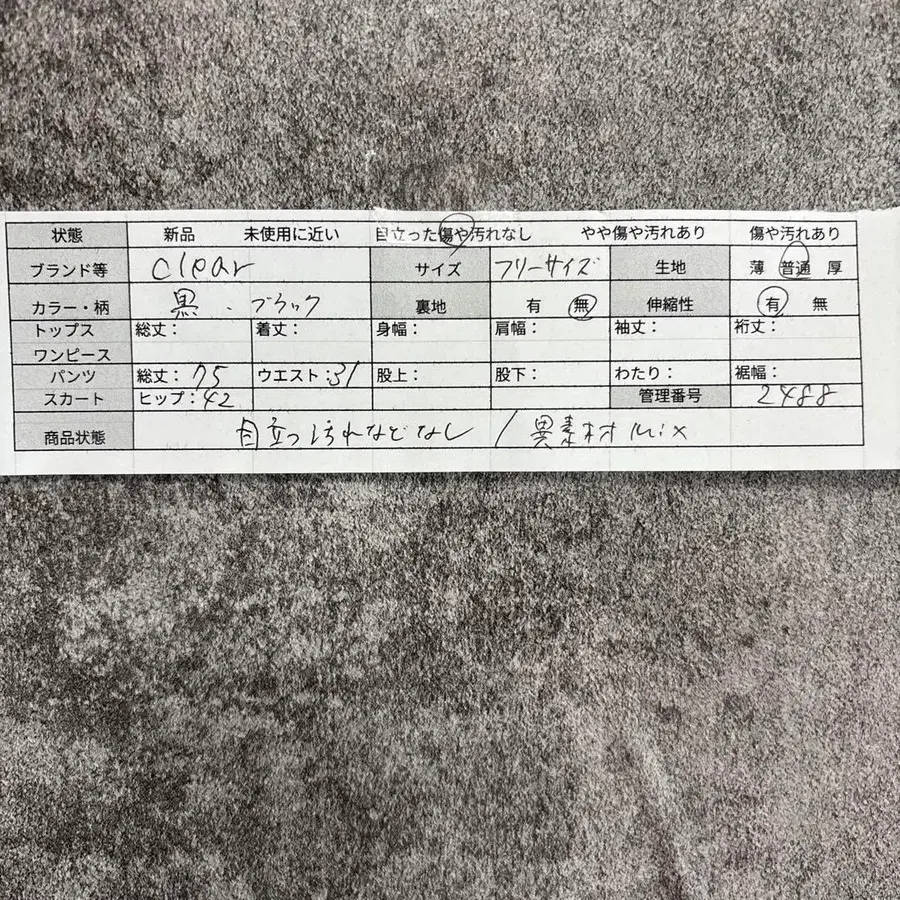 状態 新品 未使用に近い 目立った傷や汚れなし やや傷や汚れあり 傷や汚れあり
ブランド等 clear サイズ フリーサイズ 生地 薄 普通 厚
カラー・柄 黒・ブラック 裏地 有 無 伸縮性 有 無
トップス 総丈： 着丈： 身幅： 肩幅： 袖丈： 裄丈：
ワンピース
パンツ 総丈：75 ウエスト：31 股上： 股下： わたり： 裾幅：
スカート ヒップ：42 管理番号 2488
商品状態 目立つ汚れなどなし / 異素材mix